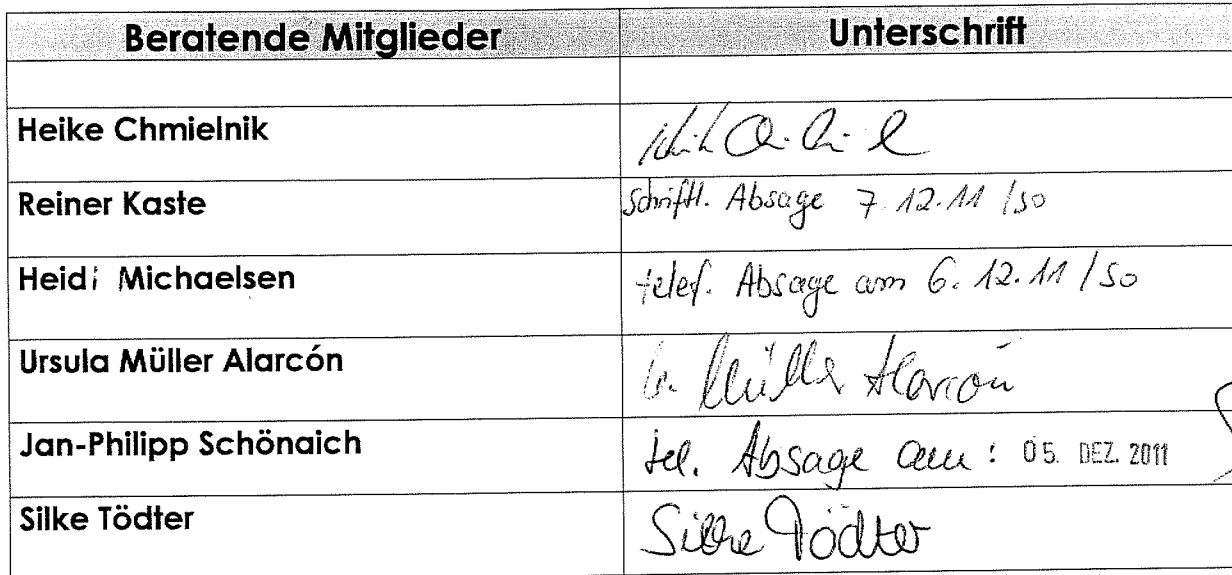 Beratende Mitglieder Unterschrift
Heike Chmielnik
Reiner Kaste schriftl. Absage 7.12.11 / so
Heidi Michaelsen telef. Absage am 6.12.11 / so
Ursula Müller Alarcón U. Müller Alarcón
Jan-Philipp Schönaich tel. Absage am: 05. DEZ. 2011
Silke Tödter Silke Tödter